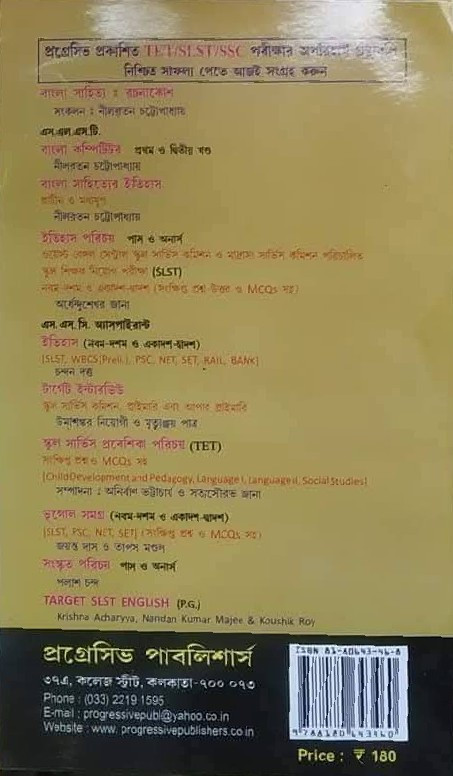 প্রগ্রেসিভ প্রকাশিত TET/SLST/SSC পরীক্ষার অপরিহার্য
নিশ্চিত সাফল্য পেতে আজই সংগ্রহ করুন
বাংলা সাহিত্য : রচনাকোশ
সংকলন : নীলরতন চট্টোপাধ্যায়
এস.এল.এস.টি.
বাংলা কম্পিটিটর প্রথম ও দ্বিতীয় খণ্ড
নীলরতন চট্টোপাধ্যায়
বাংলা সাহিত্যের ইতিহাস
প্রাচীন ও মধ্যযুগ
নীলরতন চট্টোপাধ্যায়
ইতিহাস পরিচয় পাস ও অনার্স
ওয়েস্ট বেঙ্গল সেন্ট্রাল স্কুল সার্ভিস কমিশন ও মাদ্রাসা সার্ভিস কমিশন পরিচালিত
স্কুল শিক্ষক নিয়োগ পরীক্ষা (SLST)
নবম-দশম ও একাদশ-দ্বাদশ (সংক্ষিপ্ত প্রশ্ন-উত্তর ও MCQs সহ)
অর্ধেন্দুশেখর জানা
এস.এস.সি. অ্যাসপাইরান্ট
ইতিহাস (নবম-দশম ও একাদশ-দ্বাদশ)
[SLST, WBCS(Preli.), PSC, NET, SET, RAIL, BANK]
চন্দন দত্ত
টার্গেট ইন্টারভিউ
স্কুল সার্ভিস কমিশন, প্রাইমারি এবং আপার প্রাইমারি
উমাশঙ্কর নিয়োগী ও মৃত্যুঞ্জয় পাত্র
স্কুল সার্ভিস প্রবেশিকা পরিচয় (TET)
সংক্ষিপ্ত প্রশ্ন ও MCQs সহ
[Child Development and Pedagogy, Language I, Language II, Social Studies]
সম্পাদনা : অনির্বাণ ভট্টাচার্য ও সত্যসৌরভ জানা
ভূগোল সমগ্র (নবম-দশম ও একাদশ-দ্বাদশ)
[SLST, PSC, NET, SET] (সংক্ষিপ্ত প্রশ্ন ও MCQs সহ)
জয়ন্ত দাস ও তাপস মণ্ডল
সংস্কৃত পরিচয় পাস ও অনার্স
পলাশ চন্দ
TARGET SLST ENGLISH (P.G.)
Krishna Acharyya, Nandan Kumar Majee & Koushik Roy
প্রগ্রেসিভ পাবলিশার্স
৩৭এ, কলেজ স্ট্রীট, কলকাতা-৭০০ ০৭৩
Phone : (033) 2219 1595
E-mail : progressivepubl@yahoo.co.in
Website : www.progressivepublishers.co.in
ISBN 81-80643-96-8
9 788180 643960
Price : ₹ 180